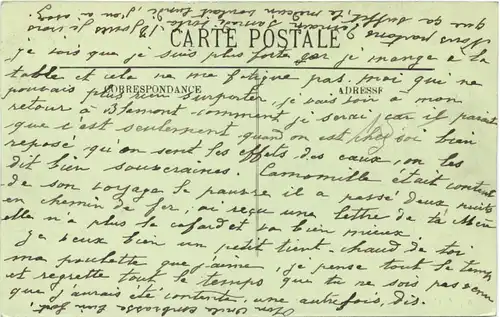 CARTE POSTALE
CORRESPONDANCE
ADRESSE
Je vois que je suis plus forte car je mange à la
table et cela ne me fatigue pas, moi qui ne
pouvais plus rien supporter, je vais voir à mon
retour à Blamont comment je serai, car il paraît
que c'est seulement quand on est chez soi bien
reposé qu'on sent les effets des eaux, on les
dit bien souveraines. Camomille était content
de son voyage le pauvre il a passé deux nuits
en chemin de fer, ai reçu une lettre de ta Mère
elle n'a plus le cafard et va bien mieux
Je veux bien un petit tient-chaud de toi
ma poulette que j'aime, je pense tout le temps
et regrette tout le temps que tu ne sois pas venue
que j'aurais été contente, une autre fois, dis.
Ton qui t'embrasse bien fort
Nous partons Samedi, serai 18 jours je crois
que ça suffit, le médecin Lundi j'en ai